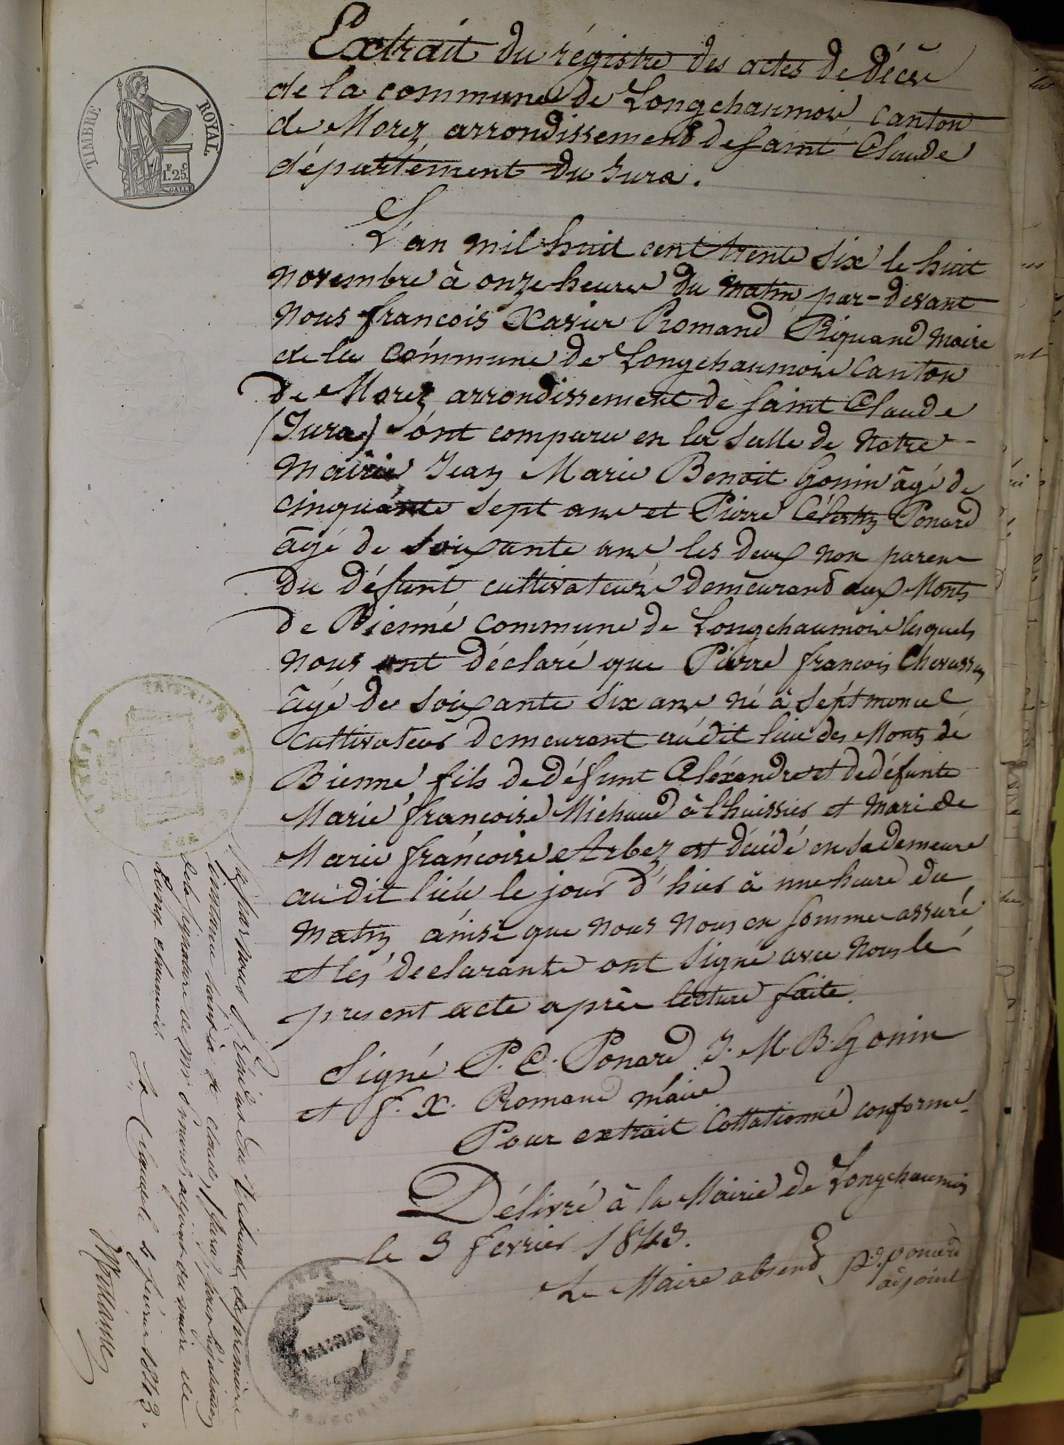 Extrait du régistre des actes de décè
de la commune de Longchaumois canton
de Morez arrondissement de Saint Claude
département du Jura.
TIMBRE ROYAL
F. C.
1.25
L'an mil huit cent trente six le huit
novembre à onze heures du matin par-devant
nous françois Xavier Romand Piquand maire
de la commune de Longchaumois canton
de Morez arrondissement de Saint Claude
(Jura) sont comparu en la salle de notre
mairie Jean Marie Benoit Gonin âgé de
cinquante sept ans et Pierre Célestin Ponard
âgé de soixante ans les deux non parens
du défunt cultivateurs demeurand aux Monts
de Bienne commune de Longchaumois lesquels
nous ont déclaré que Pierre françois Chevassu
âgé de soixante six ans né à Septmoncel
cultivateur demeurant audit lieu des Monts de
Bienne, fils de défunt Aléxandre et de défunte
Marie françoise Michaud à l'huissier et mari de
Marie françoise Arbez est décédé en sa demeure
audit lieu le jour d'hier à une heure du
matin ainsi que nous nous en somme assuré
et les déclarants ont signé avec nous le
present acte après lecture faite.
Signé P. C. Ponard J. M. B. Gonin
et f. X. Romand maire
Pour extrait Collationné conforme
Délivré à la Mairie de Longchaumois
le 3 fevrier 1843.
Le Maire absend
adjoint
MAIRIE
Vu par nous Président du Tribunal de première
instance séant à St Claude, (Jura), pour légalisation
de la signature de Mr adjoint au maire de
Longchaumois. St Claude le février 1843.